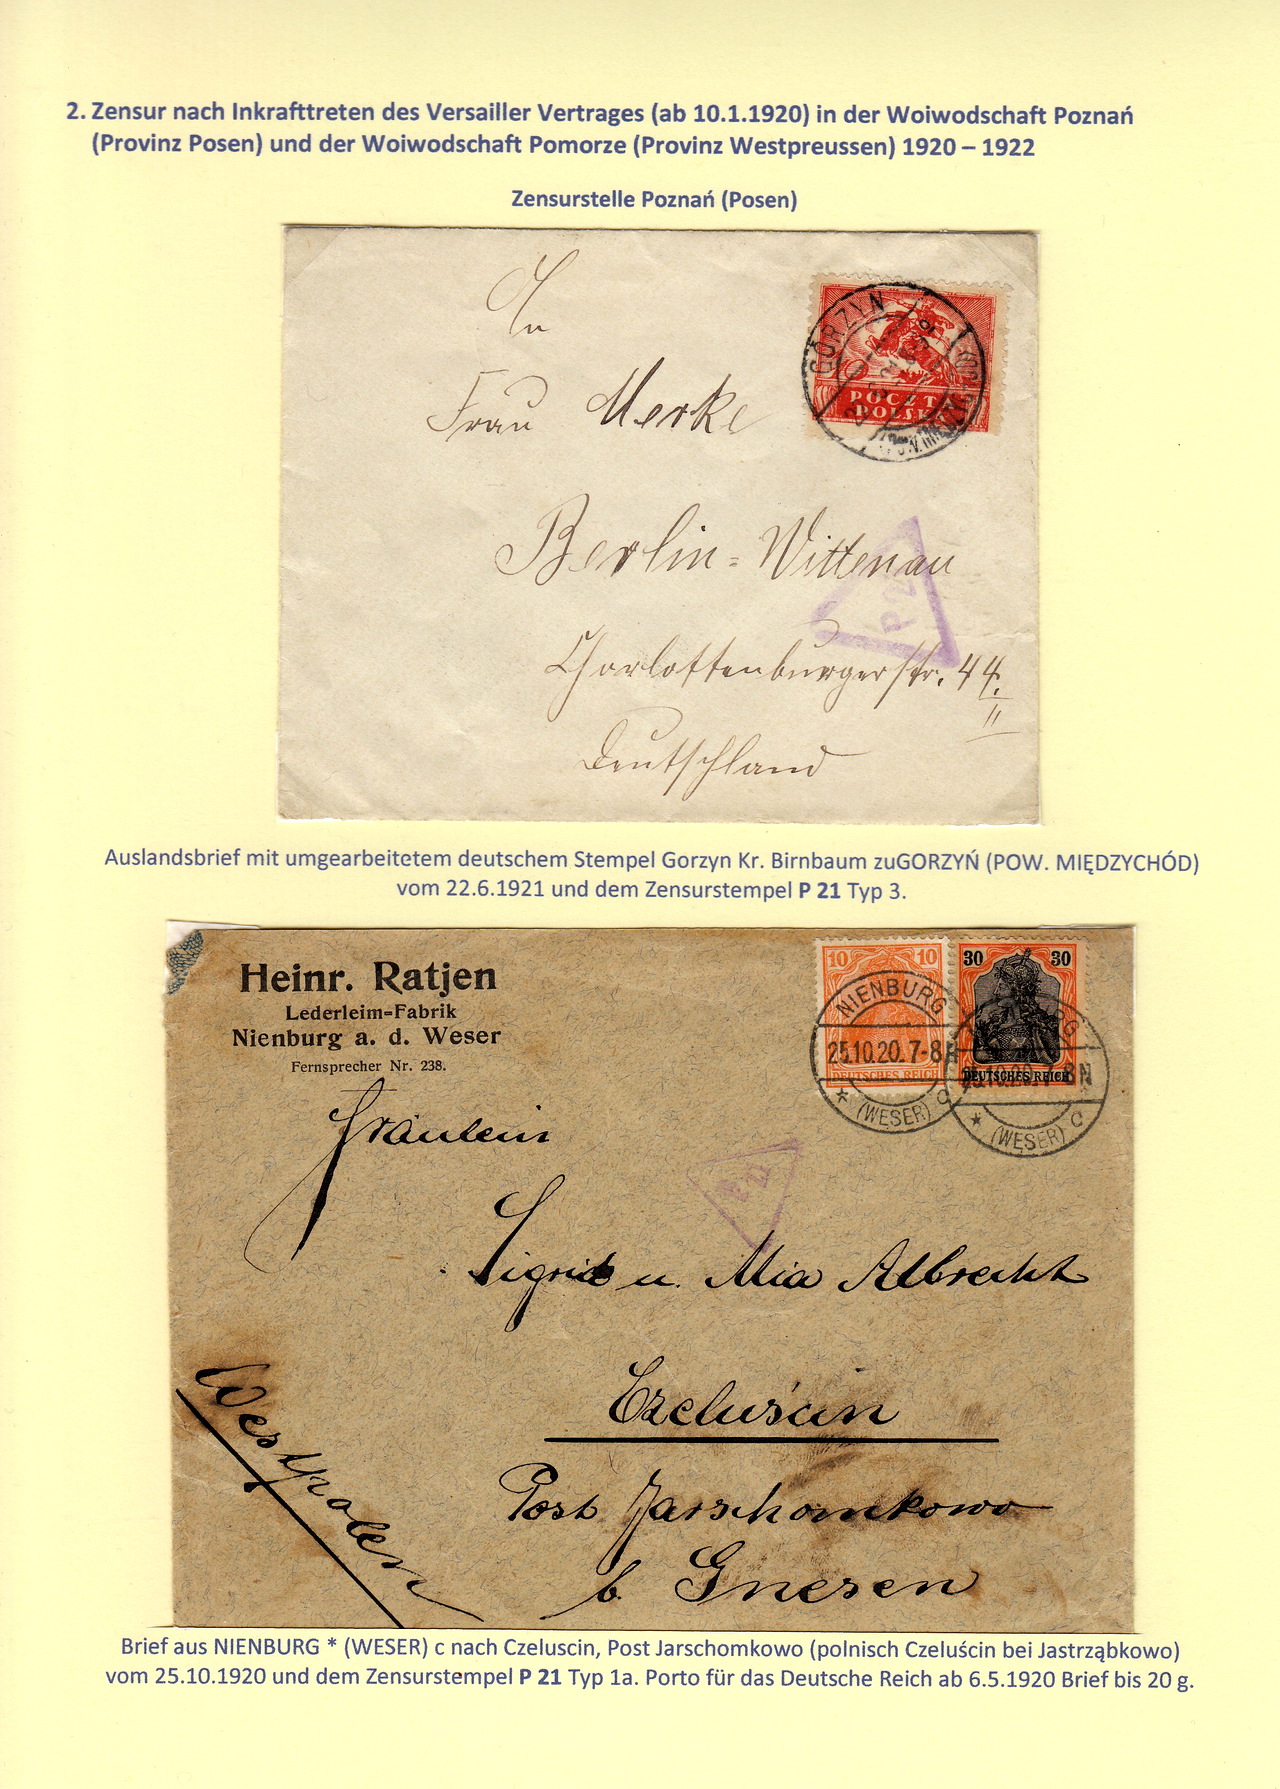 2. Zensur nach Inkrafttreten des Versailler Vertrages (ab 10.1.1920) in der Woiwodschaft Poznań
(Provinz Posen) und der Woiwodschaft Pomorze (Provinz Westpreussen) 1920 – 1922
Zensurstelle Poznań (Posen)
An
Frau Merke
Berlin=Wittenau
Charlottenburgerstr. 44.
II
Deutschland
GORZYN
POCZTA
POLSKA
P 2
Auslandsbrief mit umgearbeitetem deutschem Stempel Gorzyn Kr. Birnbaum zuGORZYŃ (POW. MIĘDZYCHÓD)
vom 22.6.1921 und dem Zensurstempel P 21 Typ 3.
Heinr. Ratjen
Lederleim=Fabrik
Nienburg a. d. Weser
Fernsprecher Nr. 238.
10 10
DEUTSCHES REICH
30 30
DEUTSCHES REICH
NIENBURG
25.10.20.7-8N
* (WESER) c
NIENBURG
25.10.20.7-8N
* (WESER) c
Fräulein
Sigrid u. Mia Albrecht
Czeluścin
Post Jarschomkowo
b. Gnesen
Westpolen
Brief aus NIENBURG * (WESER) c nach Czeluscin, Post Jarschomkowo (polnisch Czeluścin bei Jastrząbkowo)
vom 25.10.1920 und dem Zensurstempel P 21 Typ 1a. Porto für das Deutsche Reich ab 6.5.1920 Brief bis 20 g.